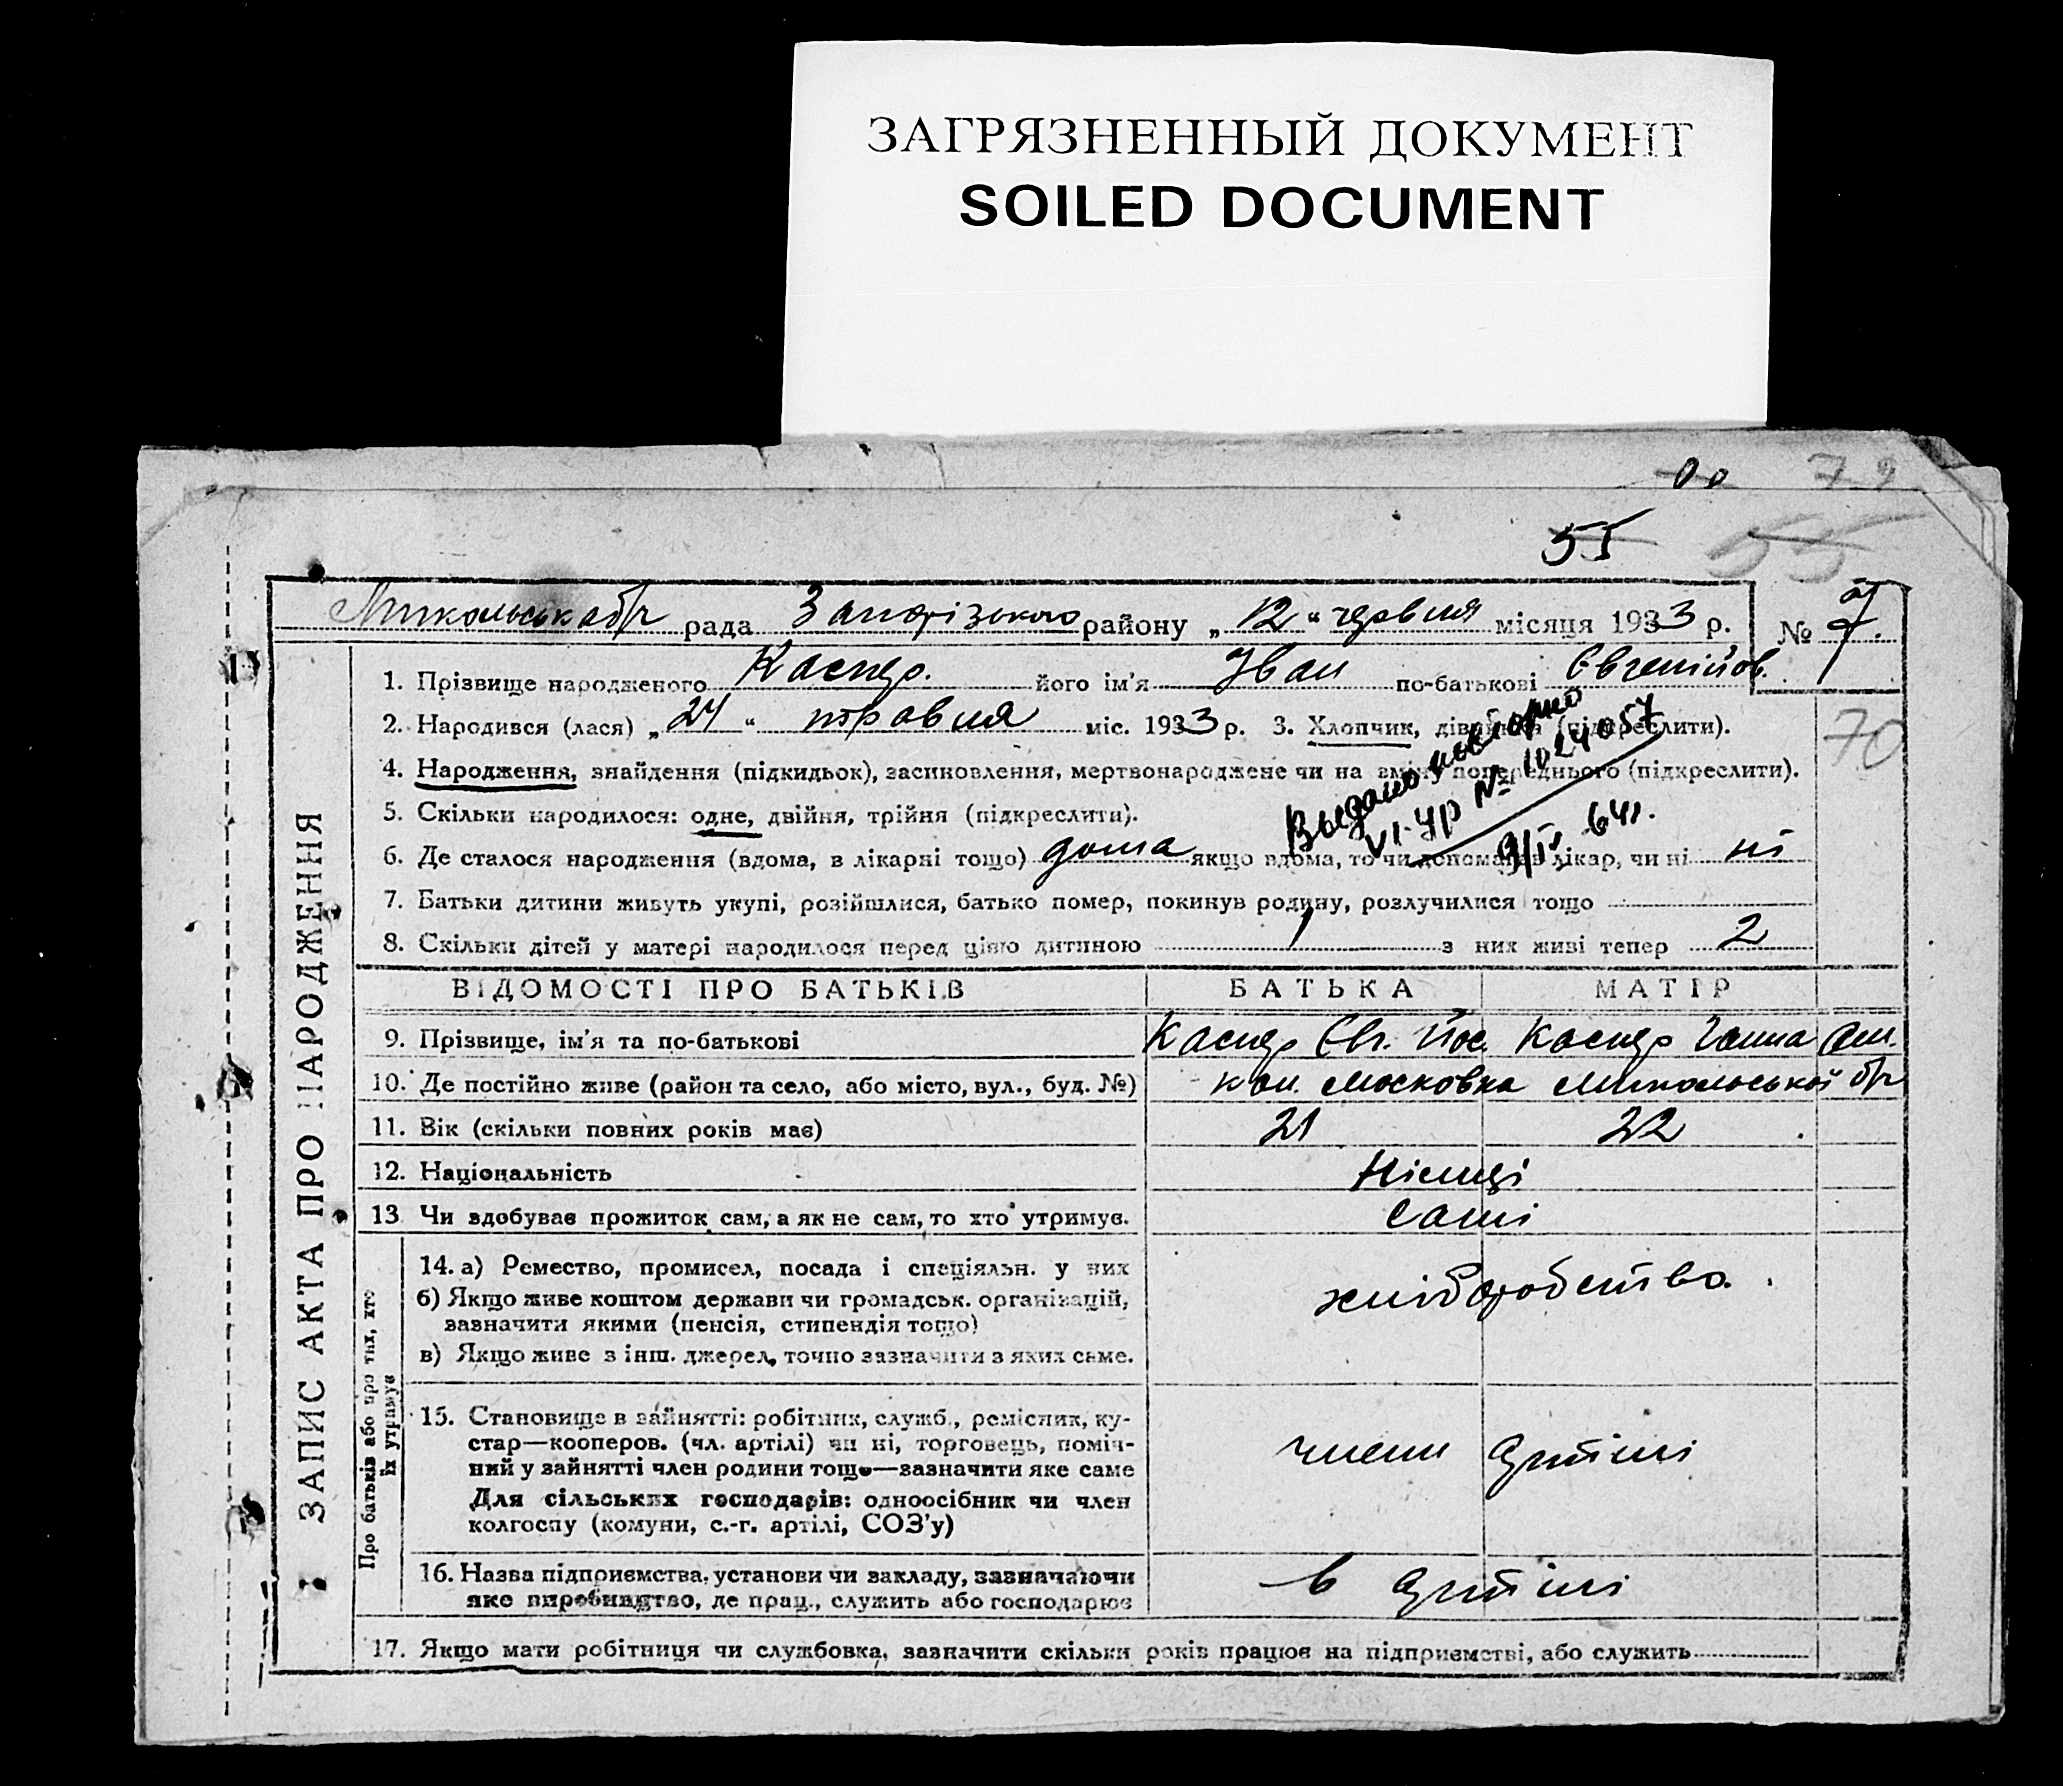 ЗАГРЯЗНЕННЫЙ ДОКУМЕНТ
SOILED DOCUMENT
79
55 55
Микольська б/г рада Запорізького району „12“ червня місяця 1933 р. № 7.
1. Прізвище народженого Каспер. його ім'я Іван по-батькові Євгенійов.
2. Народився (лася) „24“ травня міс. 1933 р. 3. Хлопчик, дівчинка (підкреслити).
70
4. Народження, знайдення (підкидьок), засиновлення, мертвонароджене чи на зміну попереднього (підкреслити).
Выдано повторно
VI-УР № 1024057
9/IV 64г.
5. Скільки народилося: одне, двійня, трійня (підкреслити).
6. Де сталося народження (вдома, в лікарні тощо) дома якщо вдома, то чи допомагав лікар, чи ні ні
7. Батьки дитини живуть укупі, розійшлися, батько помер, покинув родину, розлучилися тощо
8. Скільки дітей у матері народилося перед цією дитиною 1 з них живі тепер 2
ВІДОМОСТІ ПРО БАТЬКІВ БАТЬКА МАТІР
9. Прізвище, ім'я та по-батькові Каспер Євг. Йос. Каспер Ганна
10. Де постійно живе (район та село, або місто, вул., буд. №) кол. Московка Микольської б/г
11. Вік (скільки повних років має) 21 22
12. Національність Німці
13 Чи здобуває прожиток сам, а як не сам, то хто утримує. Самі
14. а) Ремество, промисел, посада і спеціяльн. у них хліборобство.
б) Якщо живе коштом держави чи громадськ. організацій,
зазначити якими (пенсія, стипендія тощо)
в) Якщо живе з інш. джерел, точно зазначити з яких саме.
15. Становище в зайнятті: робітник, служб., ремісник, ку-
стар—кооперов. (чл. артілі) чи ні, торговець, поміч-
ний у зайнятті член родини тощо—зазначити яке саме члени артілі
Для сільських господарів: одноосібник чи член
колгоспу (комуни, с.-г. артілі, СОЗ'у)
16. Назва підприємства, установи чи закладу, зазначаючи в артілі
яке виробництво, де прац., служить або господарює
17. Якщо мати робітниця чи службовка, зазначити скільки років працює на підприємстві, або служить
ЗАПИС АКТА ПРО НАРОДЖЕННЯ
Про батьків або про тих, хто
їх утримує